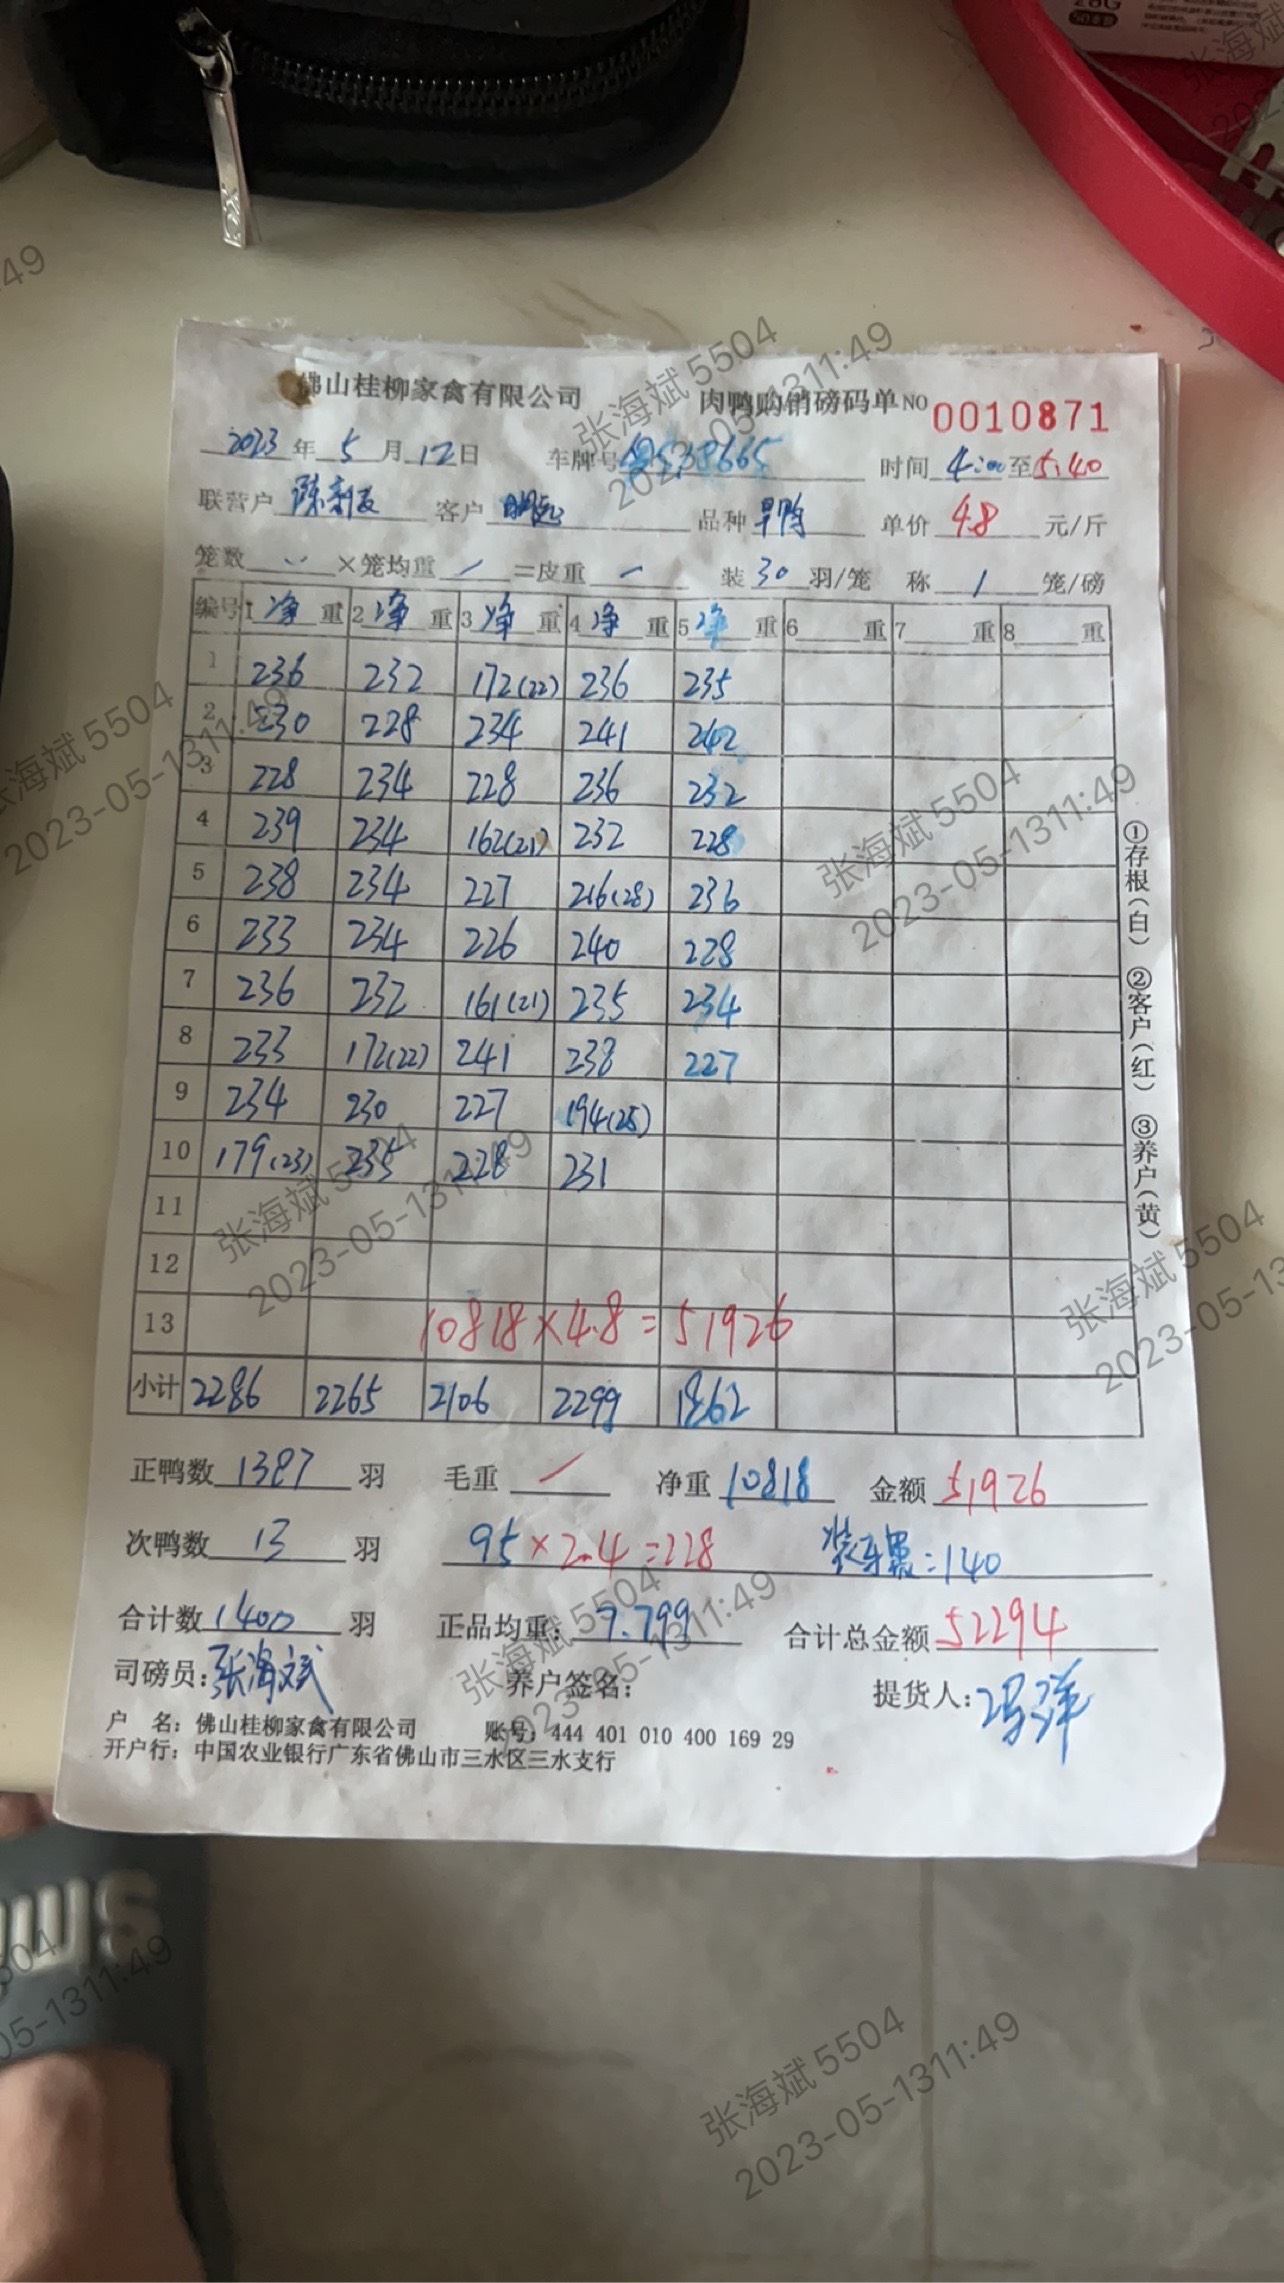 28G
佛山桂柳家禽有限公司 肉鸭购销磅码单NO 0010871
2023年5月12日 车牌号 粤S38665 时间4:00至5:40
联营户 客户 品种旱鸭 单价4.8元/斤
笼数 ×笼均重 / =皮重 / 装30羽/笼 称1笼/磅
编号 1净重 2净重 3净重 4净重 5净重 6 重 7 重 8 重
1 236 232 172(22) 236 235
2 230 228 234 241 242
3 228 234 228 236 232
4 239 234 162(21) 232 228
5 238 234 227 216(28) 236
6 233 234 226 240 228
7 236 232 161(21) 235 234
8 233 172(22) 241 238 227
9 234 230 227 194(25)
10 179(23) 235 228 231
11
12
13 10818×4.8=51926
小计 2286 2265 2106 2299 1862
正鸭数1387羽 毛重 / 净重10818 金额51926
次鸭数13羽 95×2.4=228 装车费:140
合计数1400羽 正品均重:7.799 合计总金额52294
司磅员:张海斌 养户签名: 提货人:冯洋
户 名:佛山桂柳家禽有限公司 账号:444 401 010 400 169 29
开户行:中国农业银行广东省佛山市三水区三水支行
①存根(白) ②客户(红) ③养户(黄)
张海斌 5504
2023-05-1311:49